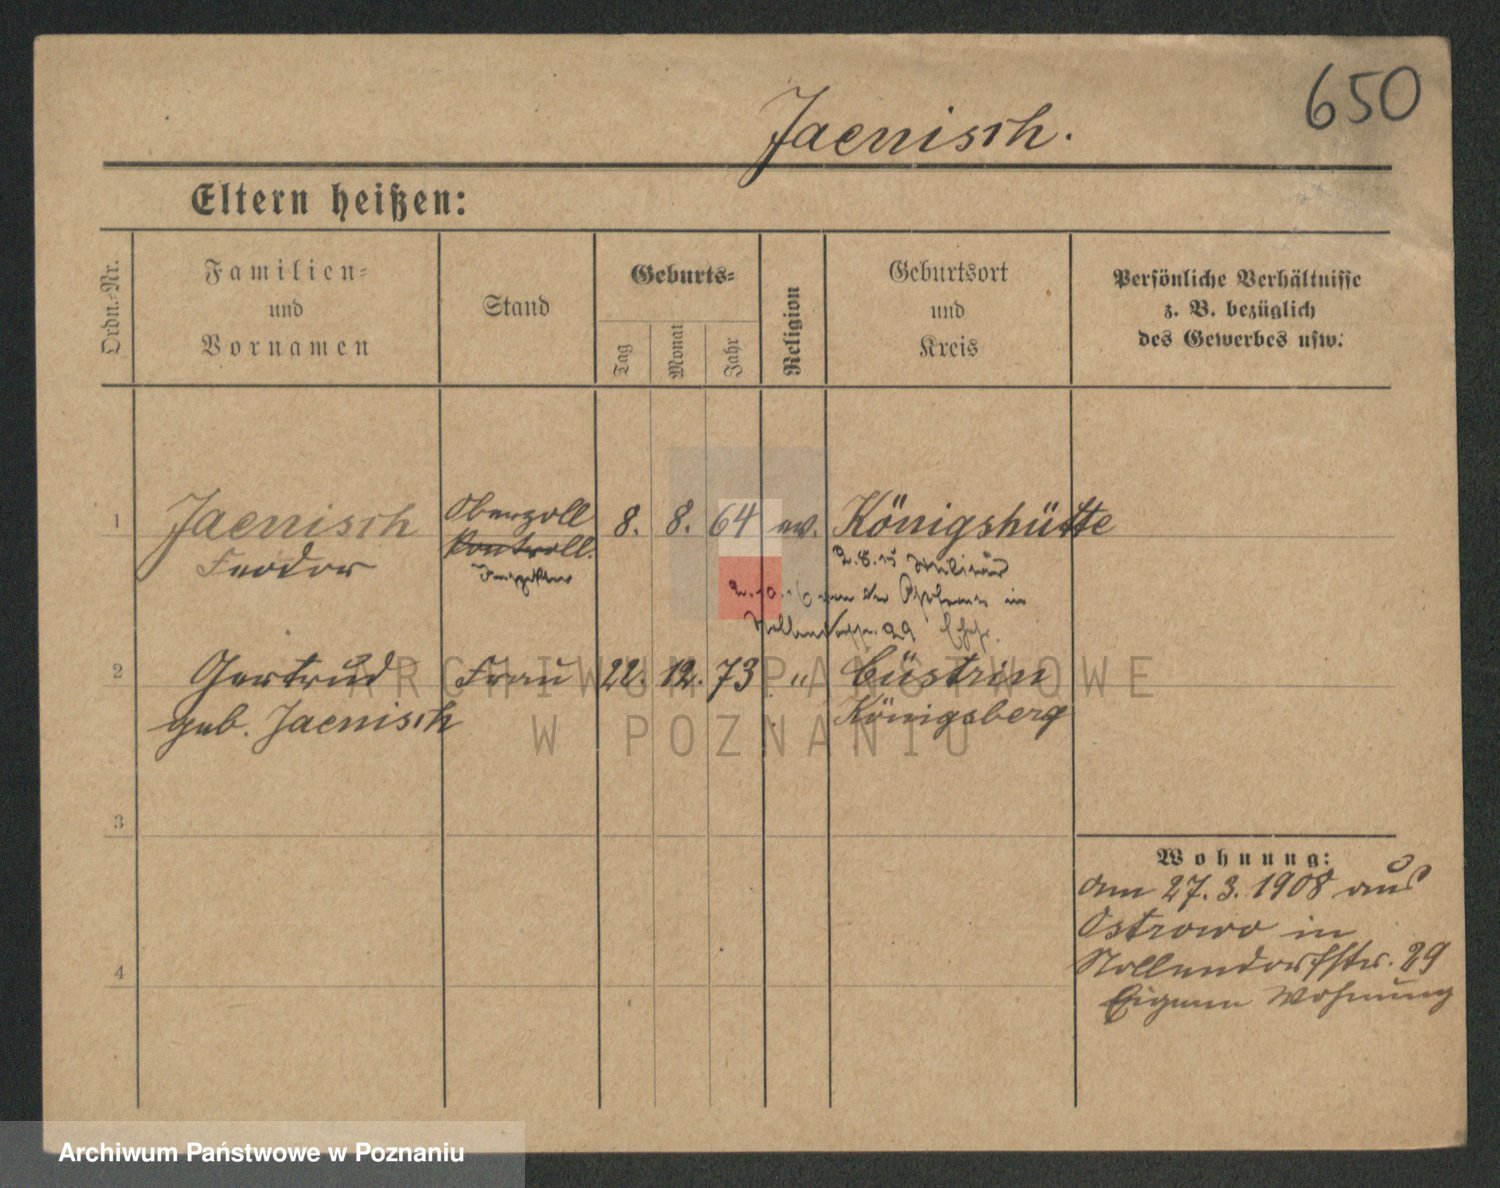 650
Jaenisch.
Eltern heißen:
Ordn.-Nr.
Familien-
und
Vornamen
Stand
Geburts-
Tag
Monat
Jahr
Religion
Geburtsort
und
Kreis
Persönliche Verhältnisse
z. B. bezüglich
des Gewerbes usw.
1
Jaenisch
Feodor
Oberzoll
Kontroll.
Inspektor
8. 8. 64 ev. Königshütte
2.8.15 Militär
2.10.16 von der in
Nollendorfstr. 29
2
Gertrud
geb. Jaenisch
Frau
22. 12. 73 " Cüstrin
Königsberg
3
4
Wohnung:
am 27. 3. 1908 aus
Ostrowo in
Nollendorfstr. 29
Eigene Wohnung
ARCHIWUM PAŃSTWOWE
W POZNANIU
Archiwum Państwowe w Poznaniu